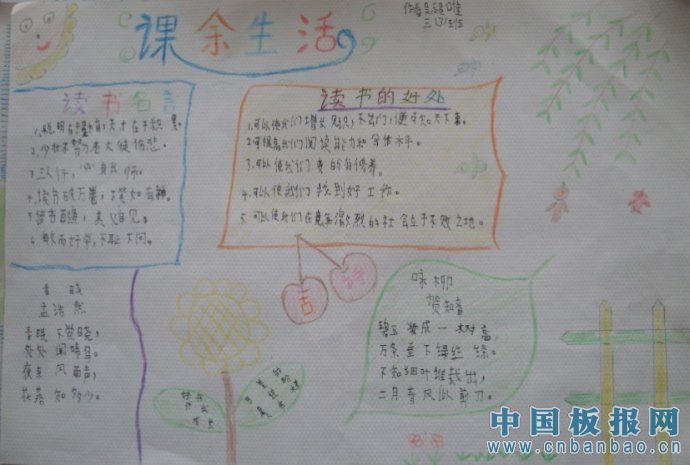 课余生活
三(2)班
读书名言
1、聪明在于勤奋,天才在于积累。
2、少壮不努力老大徒伤悲。
3、三人行,必有我师。
4、读书破万卷,下笔如有神。
5、读书百遍,其义自见。
6、敏而好学,不耻下问。
读书的好处
1、可以使我们增长知识,不出门便可知天下事。
2、可提高我们阅读能力和写作水平。
3、可以使我们更的有修养。
4、可以使我们找到好工作。
5、可以使我们在竞争激烈的社会立于不败之地。
古诗
春晓
孟浩然
春眠不觉晓,
处处闻啼鸟。
夜来风雨声,
花落知多少。
咏柳
贺知章
碧玉妆成一树高,
万条垂下绿丝绦。
不知细叶谁裁出,
二月春风似剪刀。
中国板报网
www.cnbanbao.cn